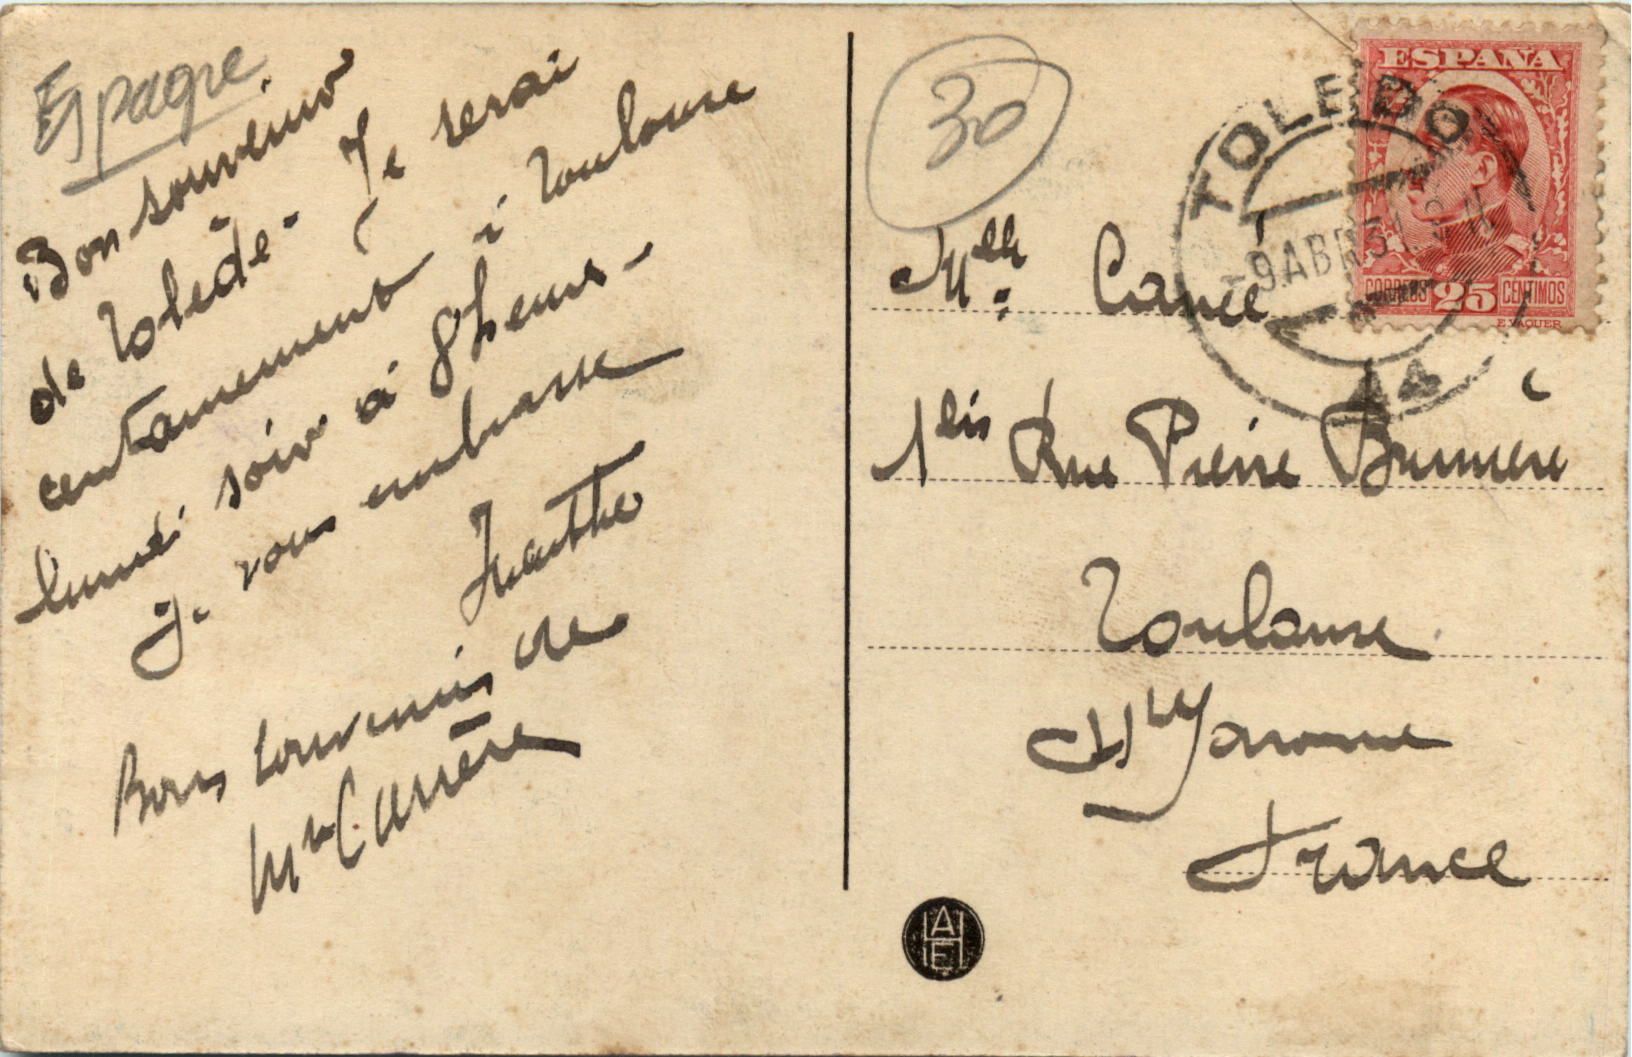 Espagne
Bon souvenir
de Tolède. Je serai
certainement à Toulouse
lundi soir à 8 heures.
Je vous embrasse
Bons souvenirs de
Mme Carrère
30
Mlle Carrié
1 bis Rue Pierre Brunière
Toulouse
Hte Garonne
France
TOLEDO
-9 ABR 31
ESPAÑA
CORREOS 25 CENTIMOS
E. VAQUER
HAE